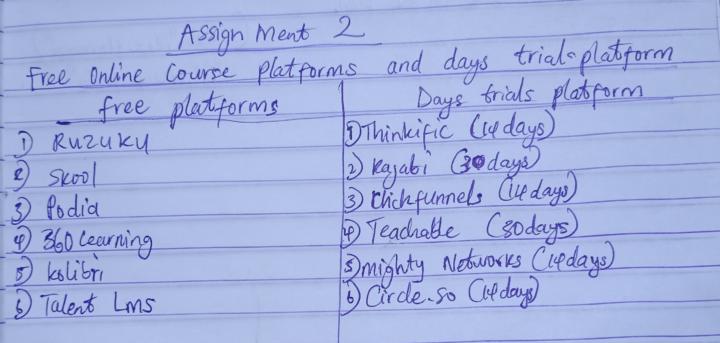 Assignment 2
Free Online Course Platforms and days trial-platform
free platforms
1) RUZUKU
2) Skool
3) Podia
4) 360 Learning
5) kolibri
6) Talent Lms
Days trials platform
1) Thinkific (14 days)
2) Kajabi (30 days)
3) Clickfunnels (14 days)
4) Teachable (30 days)
5) mighty Networks (14 days)
6) Circle.so (14 days)